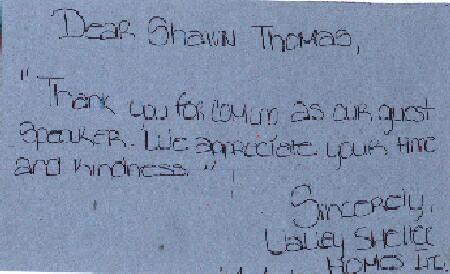 Dear Shawn Thomas,
"Thank you for coming as our guest
speaker. We appreciate your time
and kindness."
Sincerely,
Valley Shelter
Homes Inc.